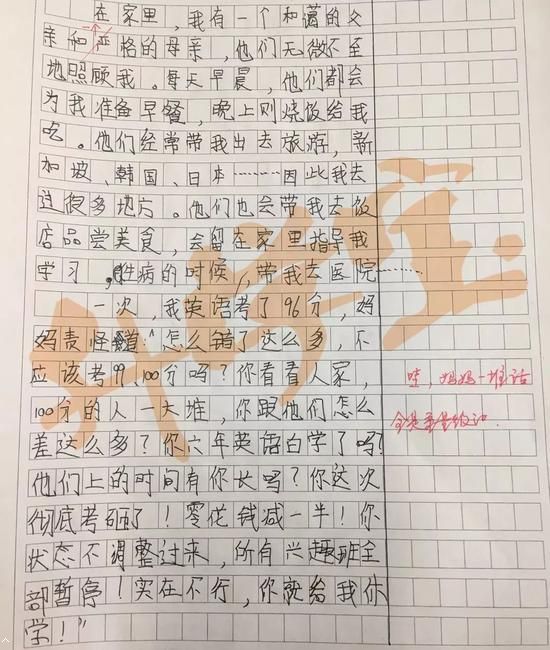 在家里，我有一个和蔼的父
亲和严格的母亲，他们无微不至
地照顾我。每天早晨，他们都会
为我准备早餐，晚上则烧饭给我
吃。他们经常带我出去旅游，新
加坡、韩国、日本………因此我去
过很多地方。他们也会带我去饭
店品尝美食，会留在家里指导我
学习，生病的时候，带我去医院……
一次，我英语考了96分，妈
妈责怪道：“怎么错了这么多，不
应该考99、100分吗？你看看人家，
100分的人一大堆，你跟他们怎么
差这么多？你六年英语白学了吗？
他们上的时间有你长吗？你这次
彻底考砸了！零花钱减一半！你
状态不调整过来，所有兴趣班全
部暂停！实在不行，你就给我休
学！”
哇，妈妈一堆话
全是重量级